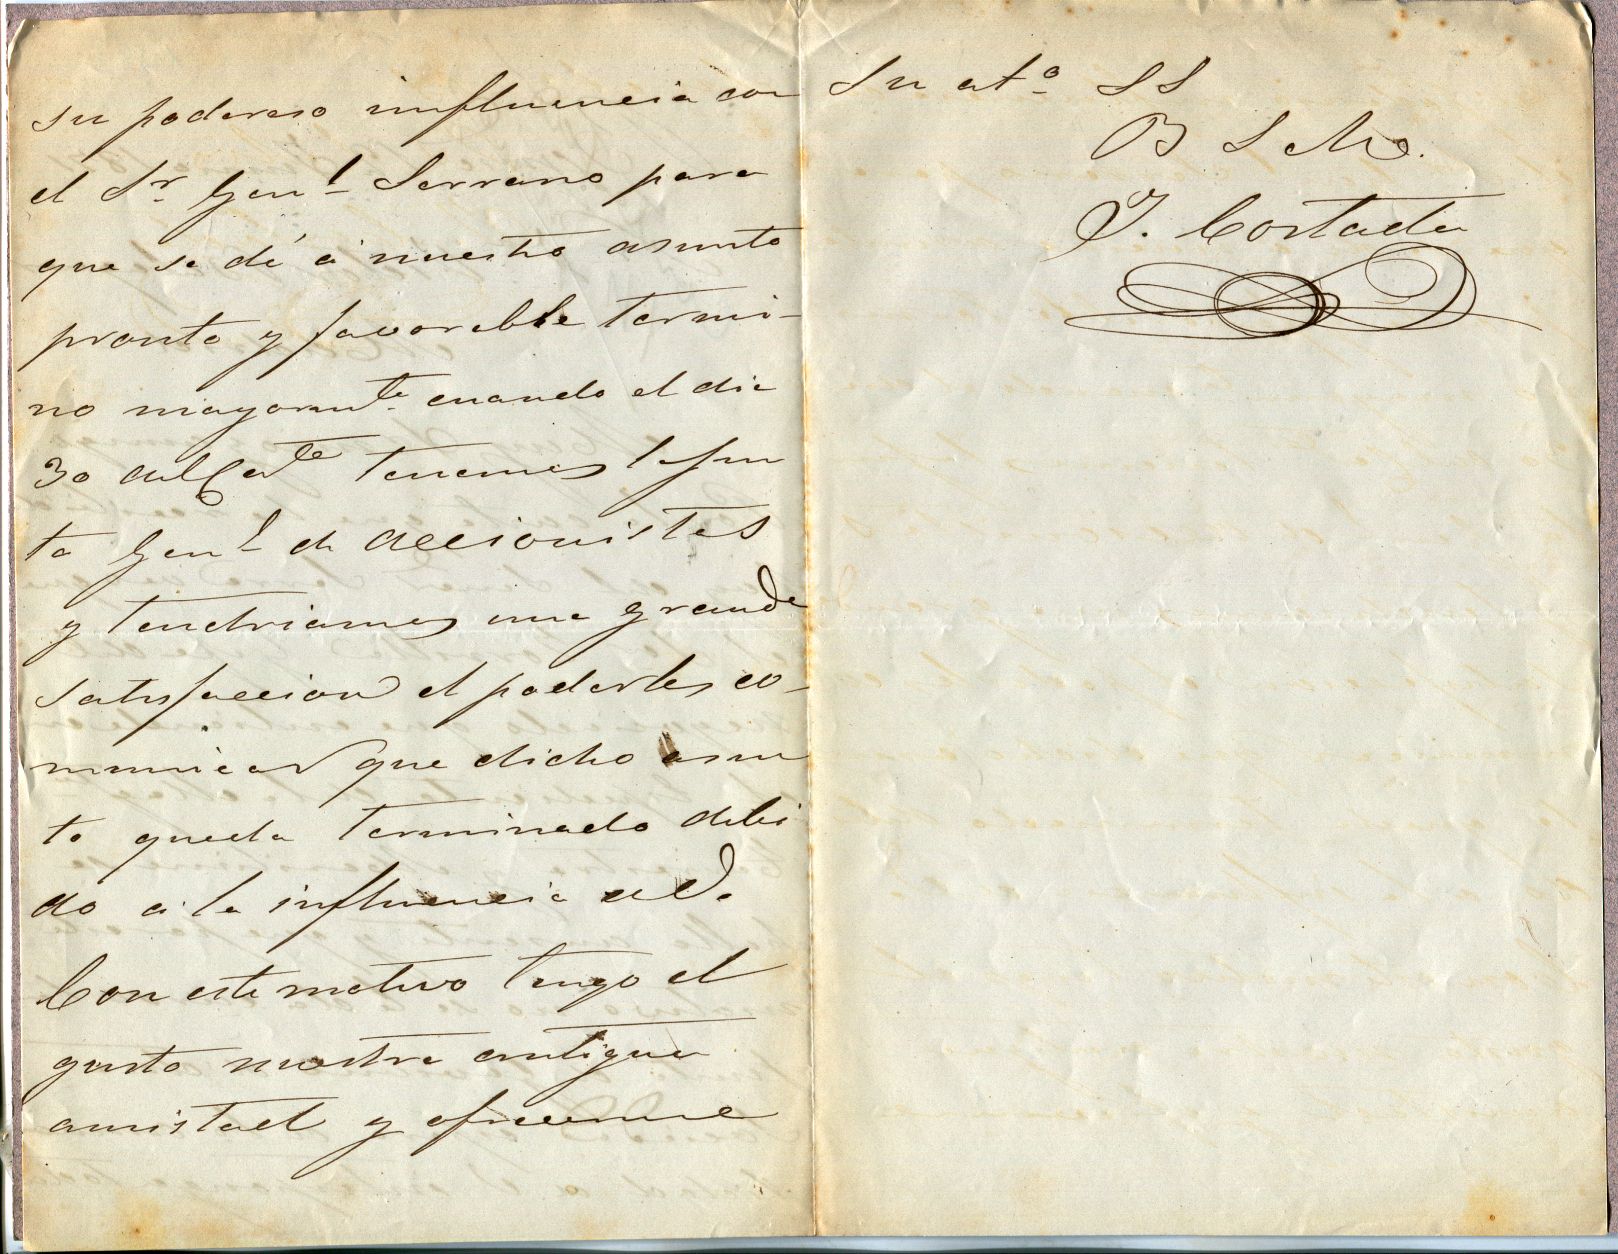 su poderoso influencia con
el Sr. Genl. Serrano para
que se dé á nuestro asunto
pronto y favorable termi-
no mayormte. cuando el dia
30 del Cote tenemos la Jun
ta Genl. de accionistas
y tendriamos una grande
satisfaccion el poderles co-
municar que dicho asun
to queda terminado debi
do a la influencia de V.
Con este motivo tengo el
gusto nuestra antigua
amistad y ofrecerme
Su atº SS
B S M
J. Cortada